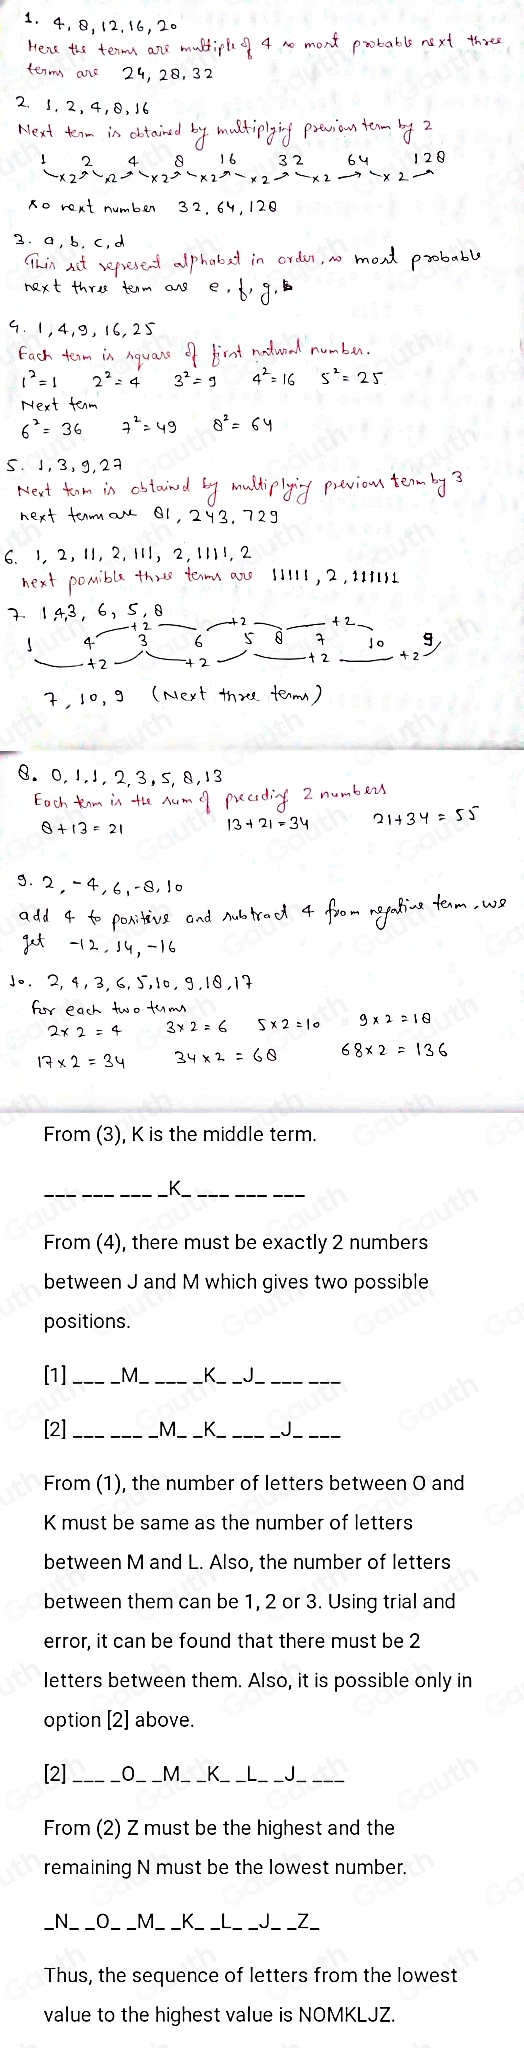 1. 4, 8, 12, 16, 20
Here the terms are multiple of 4 so most probable next three
terms are 24, 28, 32
2. 1, 2, 4, 8, 16
Next term is obtained by multiplying previous term by 2
1 2 4 8 16 32 64 128
×2 ×2 ×2 ×2 ×2 ×2 ×2
so next number 32, 64, 128
3. a, b, c, d
This set represent alphabet in order, so most probable
next three term are e, f, g.
4. 1, 4, 9, 16, 25
Each term is square of first natural number.
1²=1 2²=4 3²=9 4²=16 5²=25
Next term
6²= 36 7²=49 8²= 64
5. 1, 3, 9, 27
Next term is obtained by multiplying previous term by 3
next term are 81, 243, 729
6. 1, 2, 11, 2, 111, 2, 1111, 2
next possible three terms are 11111, 2, 111111
7. 1,4,3, 6, 5, 8
+2 +2 +2
1 4 3 6 5 8 7 10 9
+2 +2 +2 +2
7, 10, 9 (Next three terms)
8. 0, 1, 1, 2, 3, 5, 8, 13
Each term is the sum of preceding 2 numbers
8+13= 21 13+21=34 21+34 = 55
9. 2, -4, 6, -8, 10
add 4 to positive and subtract 4 from negative term, we
get -12, 14, -16
10. 2, 4, 3, 6, 5, 10, 9, 18, 17
for each two terms
2×2 = 4 3×2 = 6 5×2=10 9×2=18
17×2 = 34 34×2 = 68 68×2 = 136
From (3), K is the middle term.
___ ___ ___ _K_ ___ ___ ___
From (4), there must be exactly 2 numbers
between J and M which gives two possible
positions.
[1] ___ _M_ ___ _K_ _J_ ___ ___
[2] ___ ___ _M_ _K_ ___ _J_ ___
From (1), the number of letters between O and
K must be same as the number of letters
between M and L. Also, the number of letters
between them can be 1, 2 or 3. Using trial and
error, it can be found that there must be 2
letters between them. Also, it is possible only in
option [2] above.
[2] ___ _O_ _M_ _K_ _L_ _J_ ___
From (2) Z must be the highest and the
remaining N must be the lowest number.
_N_ _O_ _M_ _K_ _L_ _J_ _Z_
Thus, the sequence of letters from the lowest
value to the highest value is NOMKLJZ.